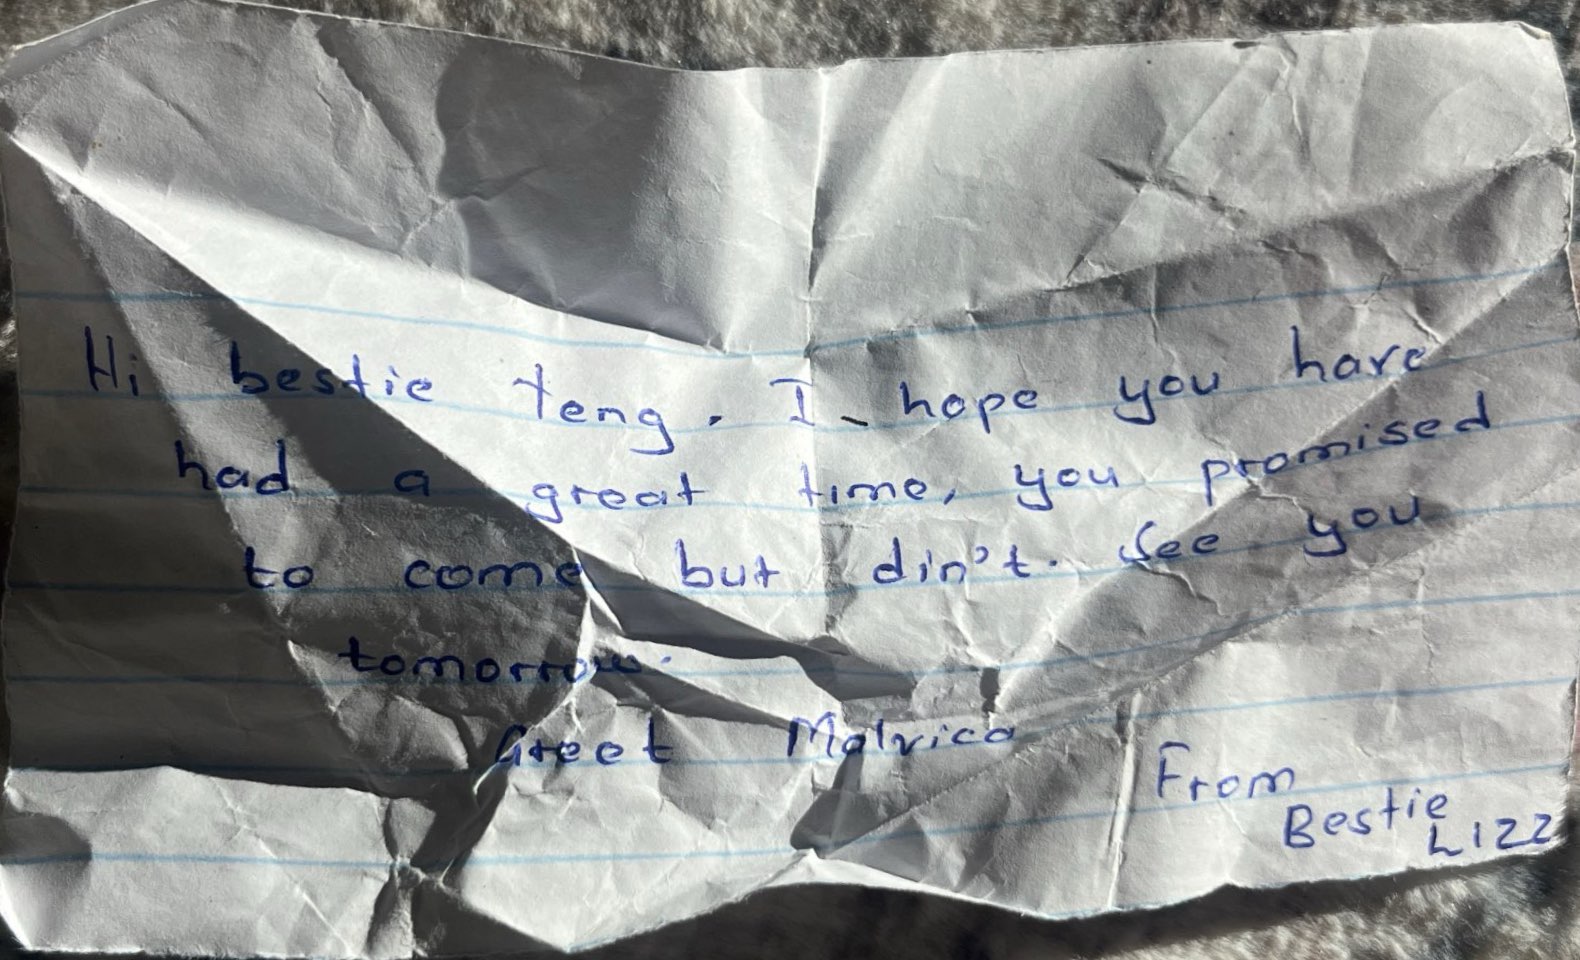 Hi bestie Teng. I hope you have
had a great time, you promised
to come but din't. See you
tomorrow.
Greet Malrica
From
Bestie
Lizz